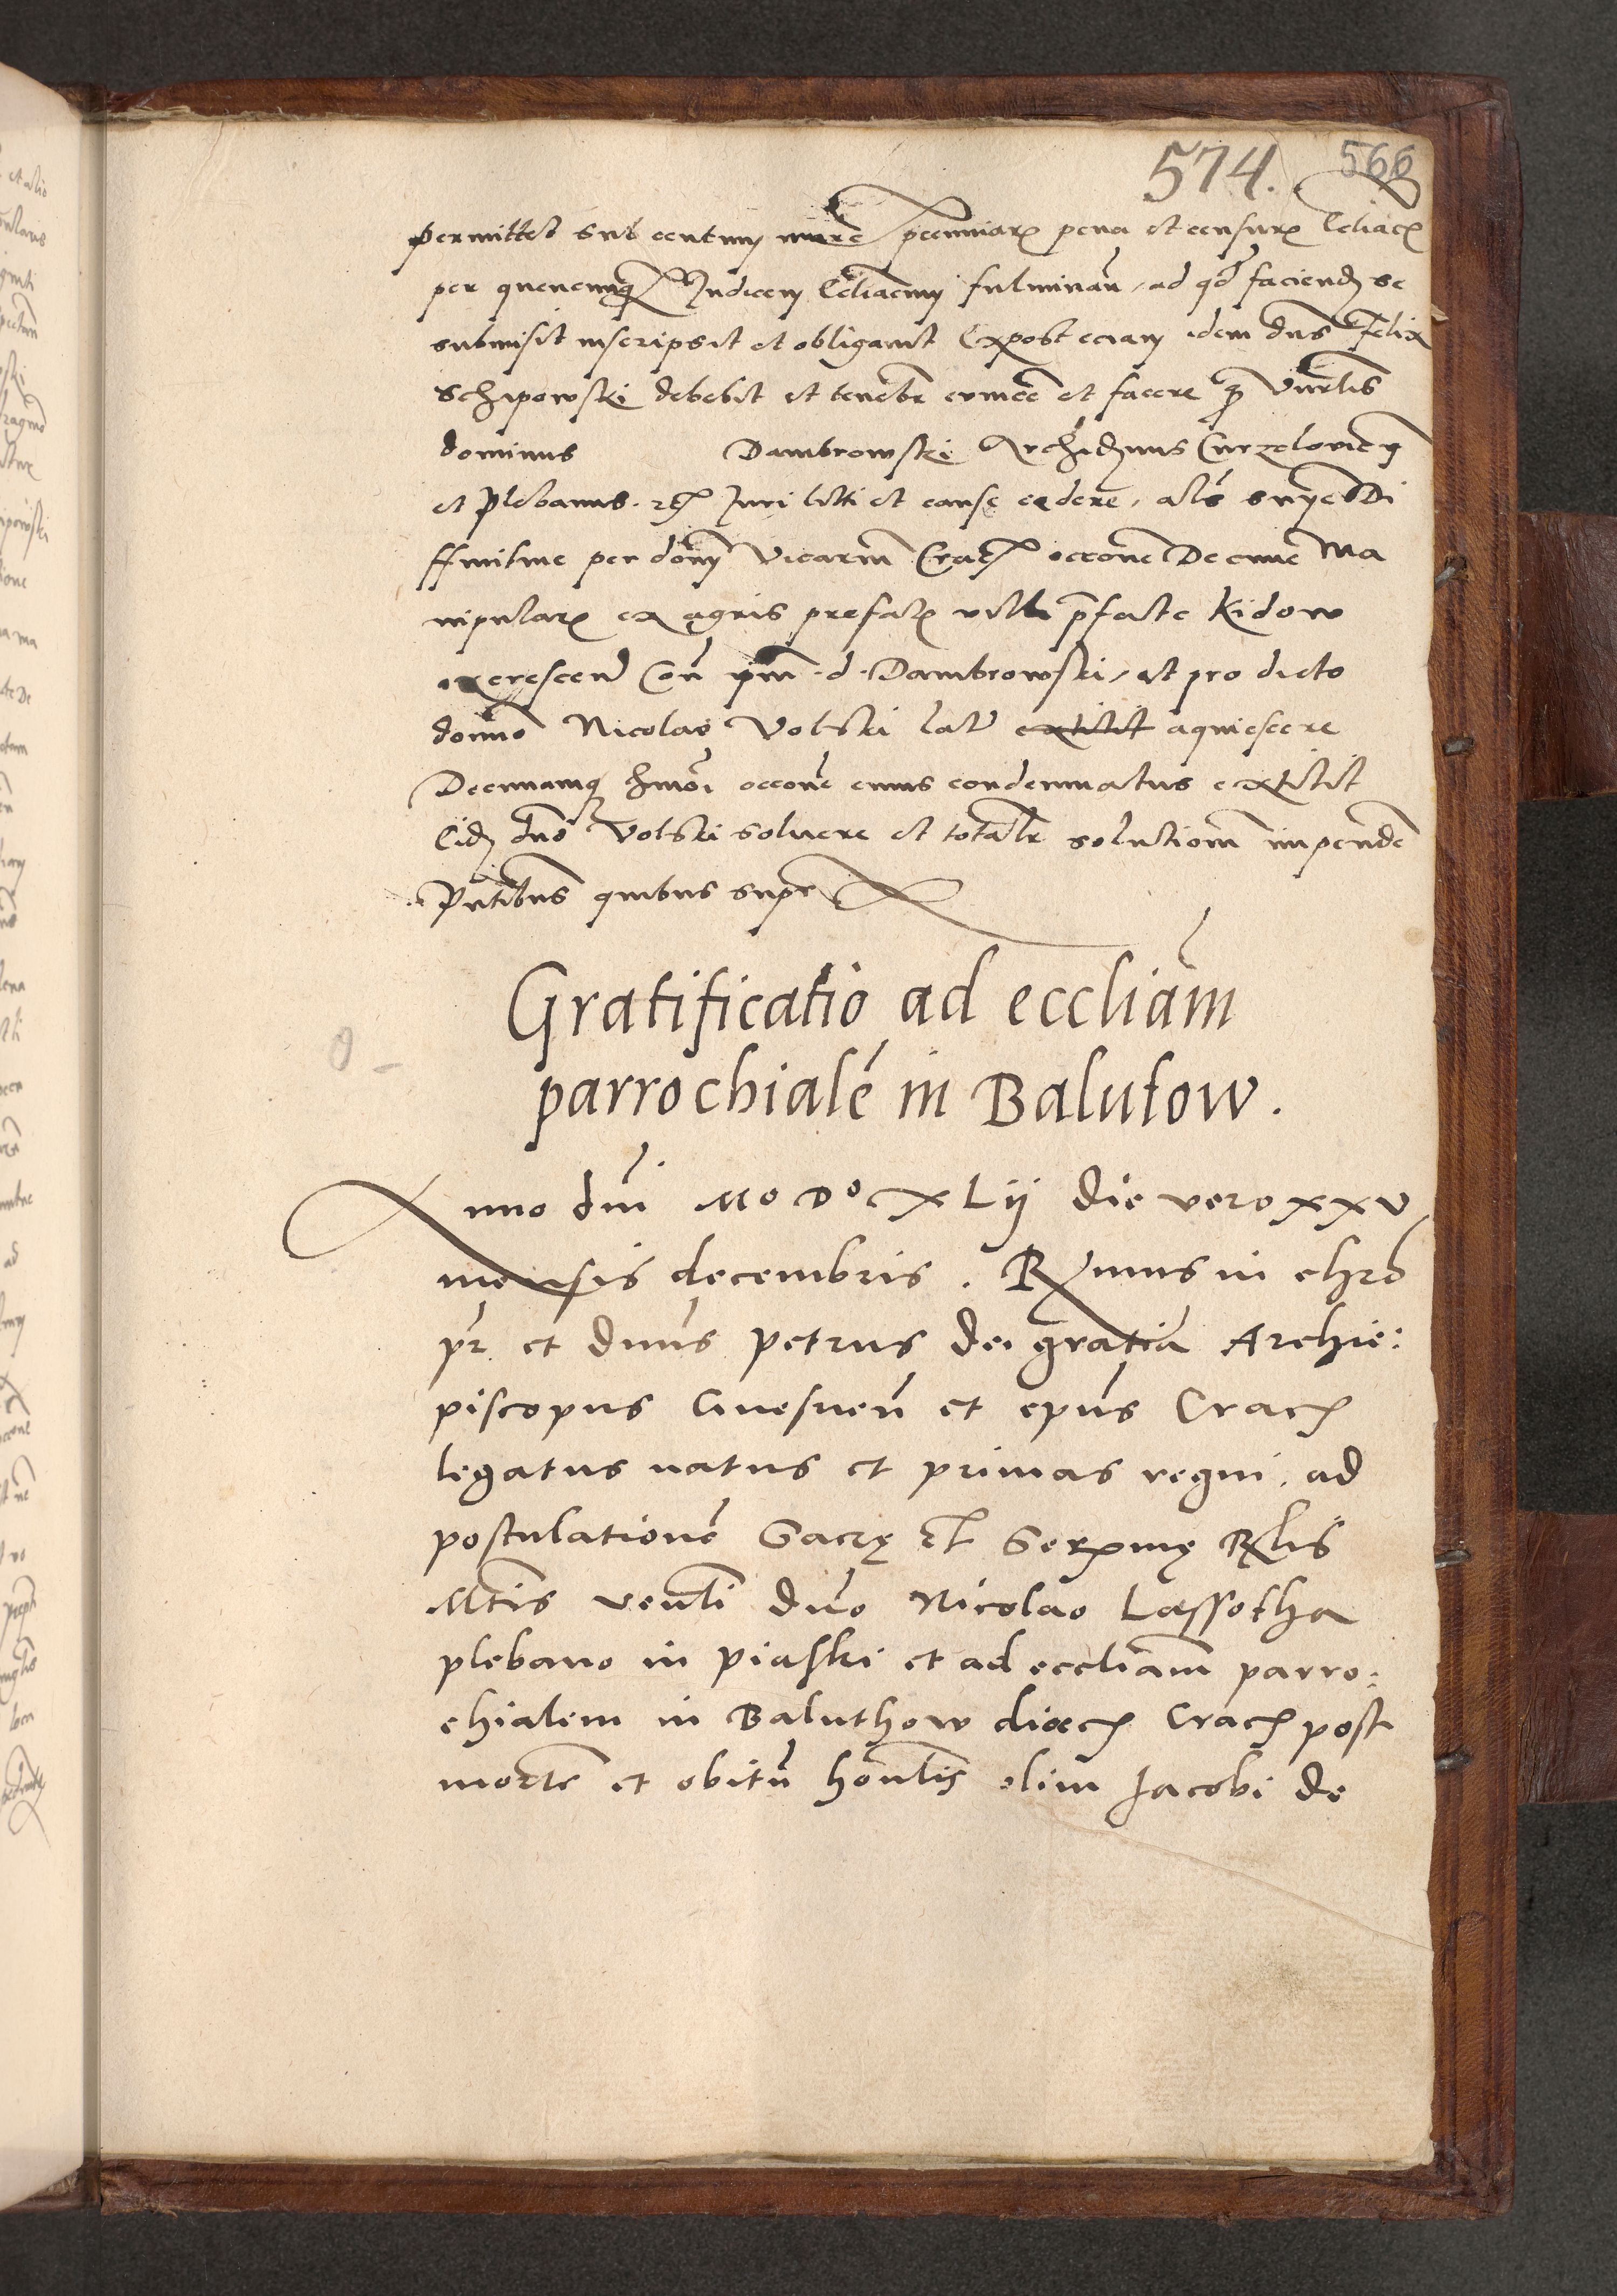 574. 566
permittet sub centum marc pecuniar pena et censur Ecliacis
per quencumq Judicem Ecliacum fulminan, ad qd faciend se
submisit inscripsit et obligavit Expost eciam idem dns Felix
Schipowski debebit et tenebr evincere et facere q Vnrlis
dominus Dambrowski Archidnus Curzeloviens
et Plebanus Juri liti et cause cedere, als snyesDi
ffinitive per donm Vicarm Crac occone Decime Ma
nipular ex agris prefat ville pfacte Kidow
excrescen Con ipm d. Dambrowski, et pro dicto
donno Nicolao Volski lat extitit aquiescere
Decimamq hmoi occone cuius condemnatus extitit
Eid dno Volski solvere et totalr solutionm impende
Pntibus quibus supr
Gratificatio ad eccliam
parrochialé in Balutow.
Anno dni Mo Do XLij die vero xxv
mensis decembris. Rmus in chro
pr et dnus Petrus dei gratia Archie:
piscopus Gnesnen et epus Crac
legatus natus et primas regni, ad
postulationé Sacrę et Serxmę Rlis
Mtis venli dno Nicolao Lassotha
plebano in Piaski et ad eccliam parro:
chialem in Baluthow dioec Crac post
morte et obitu honlis olim Jacobi de